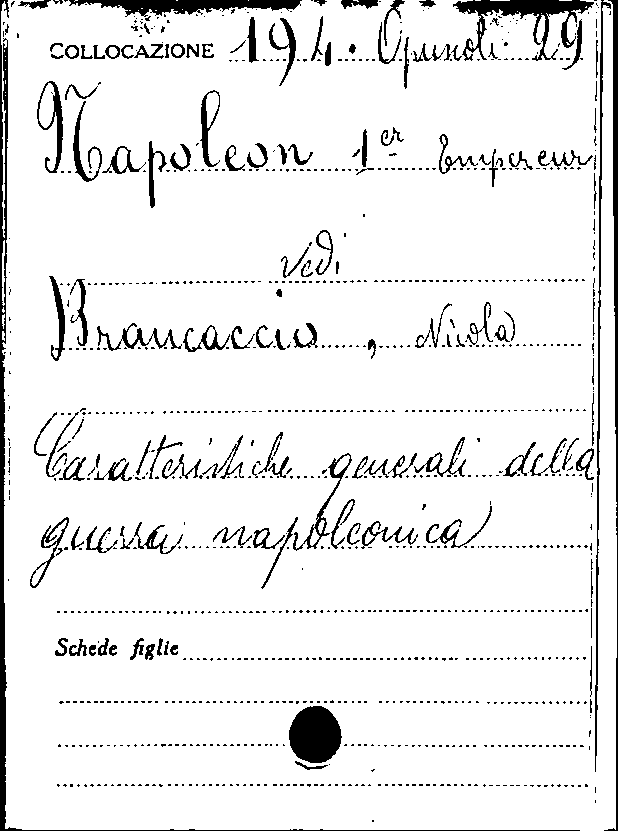 COLLOCAZIONE 194. Opuscoli 29
Napoleon 1er Empereur
Vedi
Brancaccio, Nicola
Caratteristiche generali della
guerra napoleonica
Schede figlie